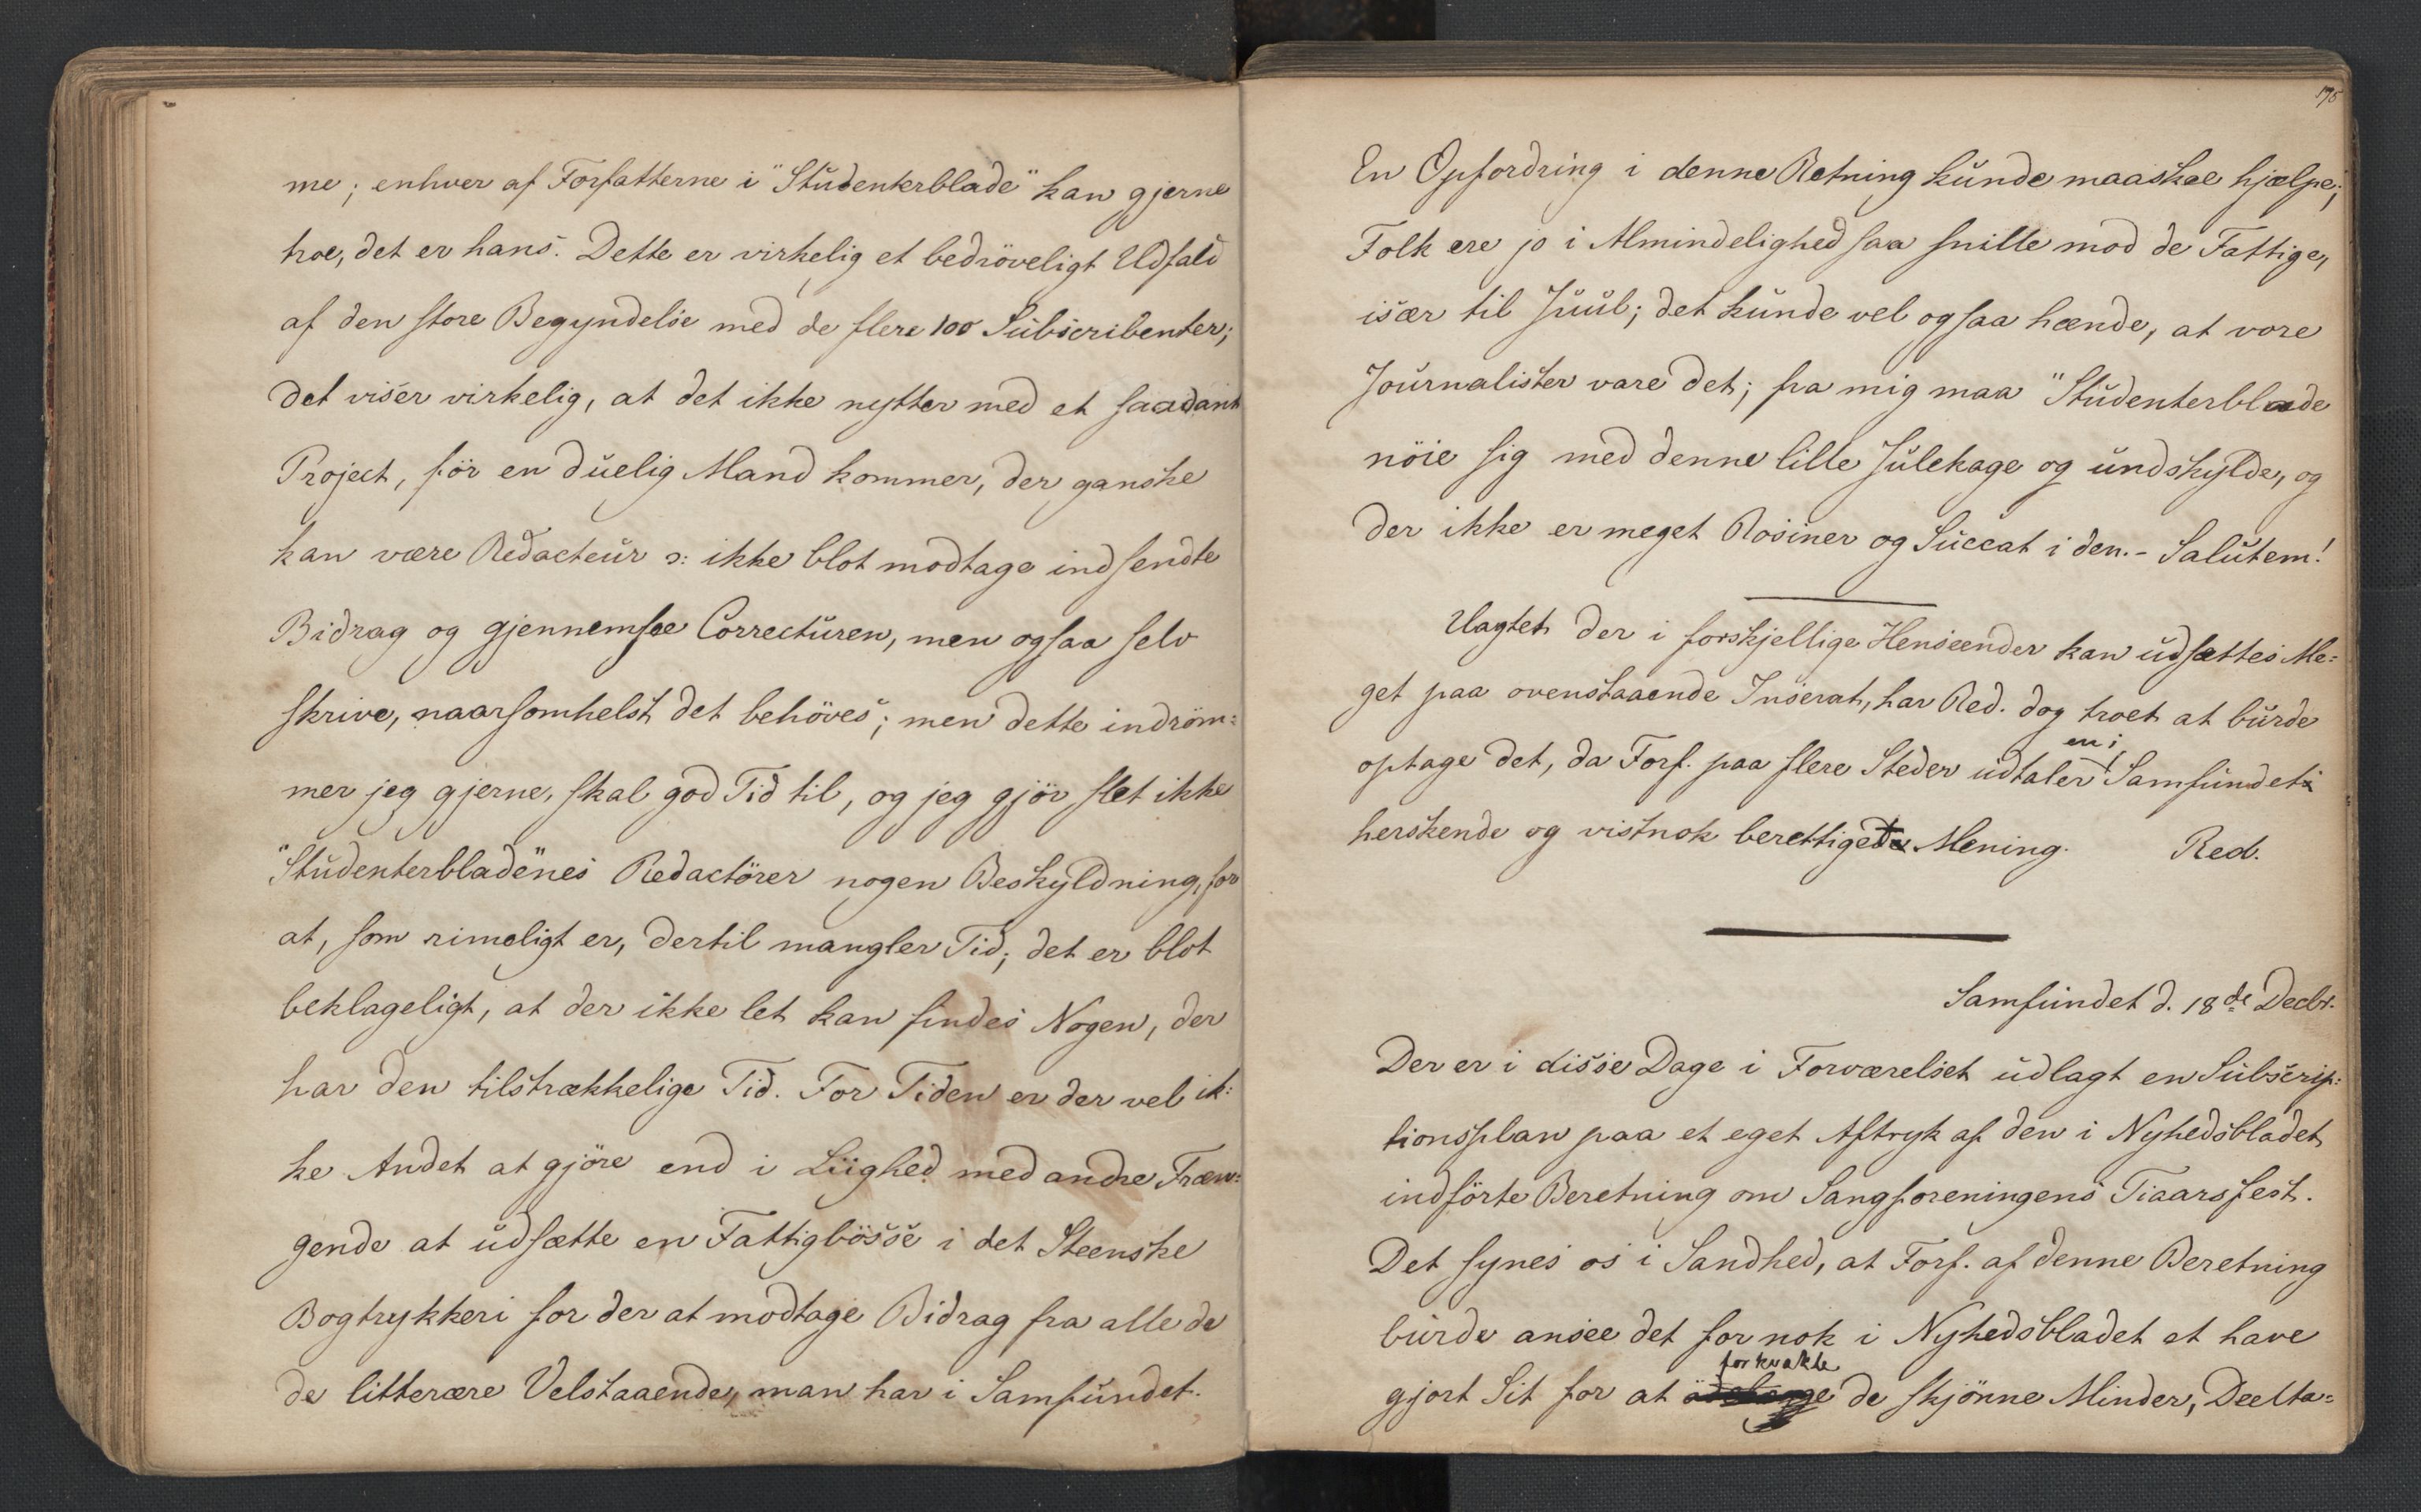 me; enhver af Forfatterne i "Studenterblade" kan gjerne
troe, det er hans. Dette er virkelig et bedröveligt Udfald
af den store Begyndelse med de flere 100 Subscribenter;
det viser virkelig, at det ikke nytter med et saadant
Project, för en duelig Mand kommer, der ganske
kan være Redacteur ɔ: ikke blot modtage indsendte
Bidrag og gjennemsee Correcturen, men ogsaa selv
skrive, naarsomhelst det behöves; men dette indröm=
mer jeg gjerne, skal god Tid til, og jeg gjör slet ikke
"Studenterblade"nes Redactörer nogen Beskyldning, for
at, som rimeligt er, dertil mangler Tid; det er blot
beklageligt, at der ikke let kan findes Nogen, der
har den tilstrækkelige Tid. For Tiden er der vel ik=
ke Andet at gjöre end i Liighed med andre Træn=
gende at udsætte en Fattigbösse i det Steenske
Bogtrykkeri for der at modtage Bidrag fra alle de
de litterære Velstaaende, man har i Samfundet.
175
En Opfordring i denne Retning kunde maaskee hjælpe;
Folk ere jo i Almindelighed saa snille mod de Fattige,
især til Juul; det kunde vel ogsaa hænde, at vore
Journalister vare det; fra mig maa "Studenterblade
nöie sig med denne lille Julekage og undskylde, og
der ikke er meget Rosiner og Succat i den. - Salutem!
Uagtet der i forskjellige Henseender kan udsættes Me=
get paa ovenstaaende Inserat, har Red. dog troet at burde
optage det, da Forf. paa flere Steder udtaler en i Samfundet
herskende og vistnok berettiget Mening. Red.
Samfundet d. 18de Decbr.
Der er i disse Dage i Forværelset udlagt en Subscrip=
tionsplan paa et eget Aftryk af den i Nyhedsbladet
indförte Beretning om Sangforeningens Tiaarsfest.
Det synes os i Sandhed, at Forf. af denne Beretning
burde ansee det for nok i Nyhedsbladet at have
gjort Sit for at forkvakle de skjönne Minder, Deelta=